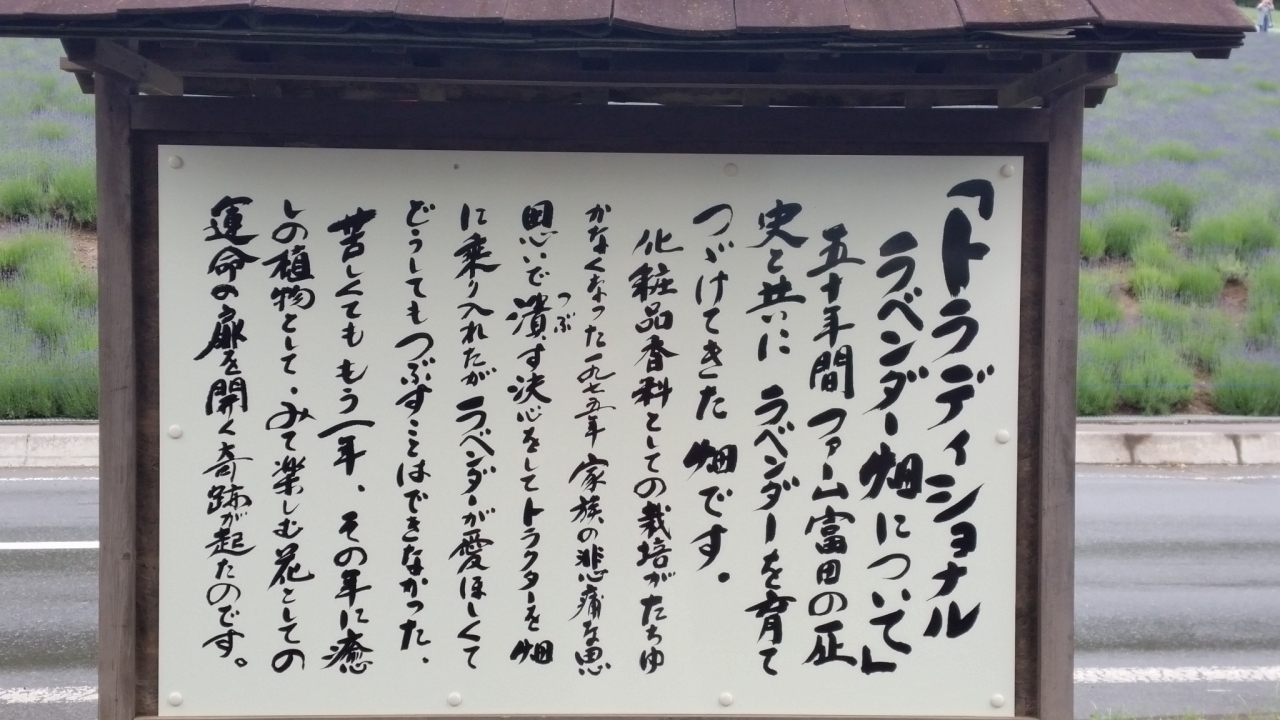 「トラディショナル
ラベンダー畑について」
五十年間 ファーム富田の歴
史と共に ラベンダーを育て
つゞけてきた 畑です。
化粧品香料としての栽培がたちゆ
かなくなった一九七五年 家族の悲痛な思
思いで潰す決心をしてトラクターを畑
つぶ
に乗り入れたが ラベンダーが愛ほしくて
どうしてもつぶすことはできなかった、
苦しくても もう一年、その年に癒
しの植物として・みて楽しむ花としての
運命の扉を開く奇跡が起たのです。